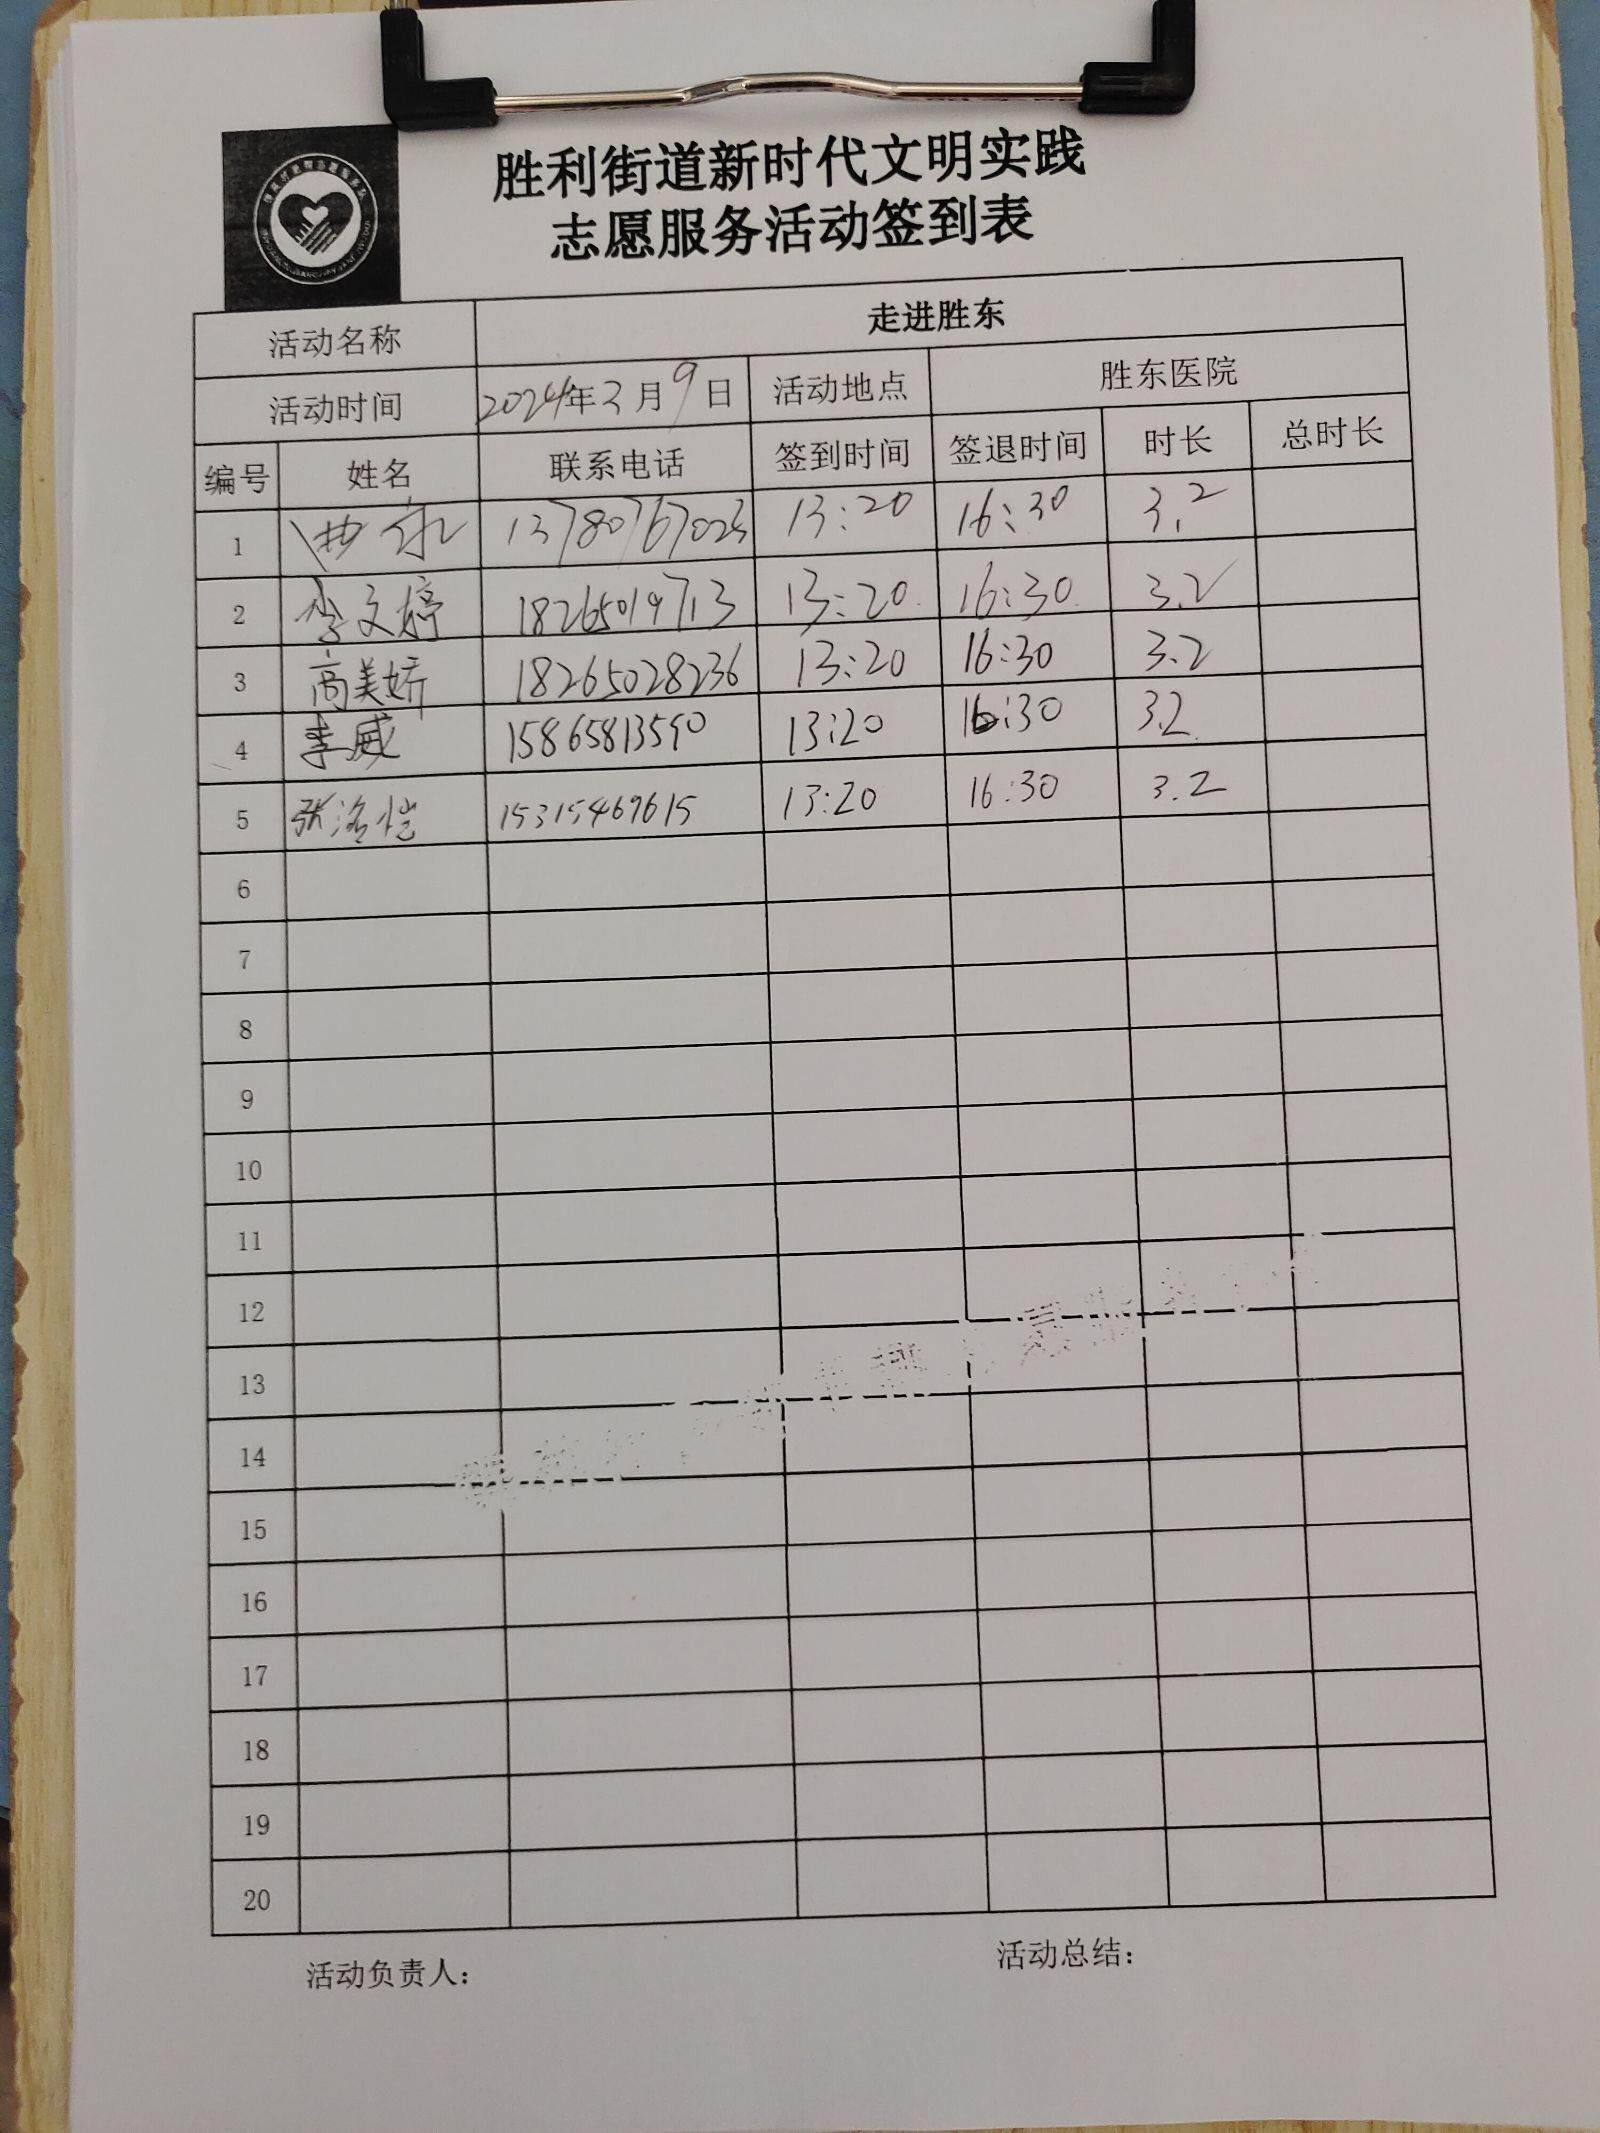 胜利街道新时代文明实践
志愿服务活动签到表
活动名称 走进胜东
活动时间 2024年3月9日 活动地点 胜东医院
编号 姓名 联系电话 签到时间 签退时间 时长 总时长
1 13780767023 13:20 16:30 3.2
2 李文婷 18265019713 13:20 16:30 3.2
3 高美娇 18265028236 13:20 16:30 3.2
4 李威 15865813590 13:20 16:30 3.2
5 张洛恺 15315469615 13:20 16:30 3.2
6
7
8
9
10
11
12
13
14
15
16
17
18
19
20
活动负责人： 活动总结：